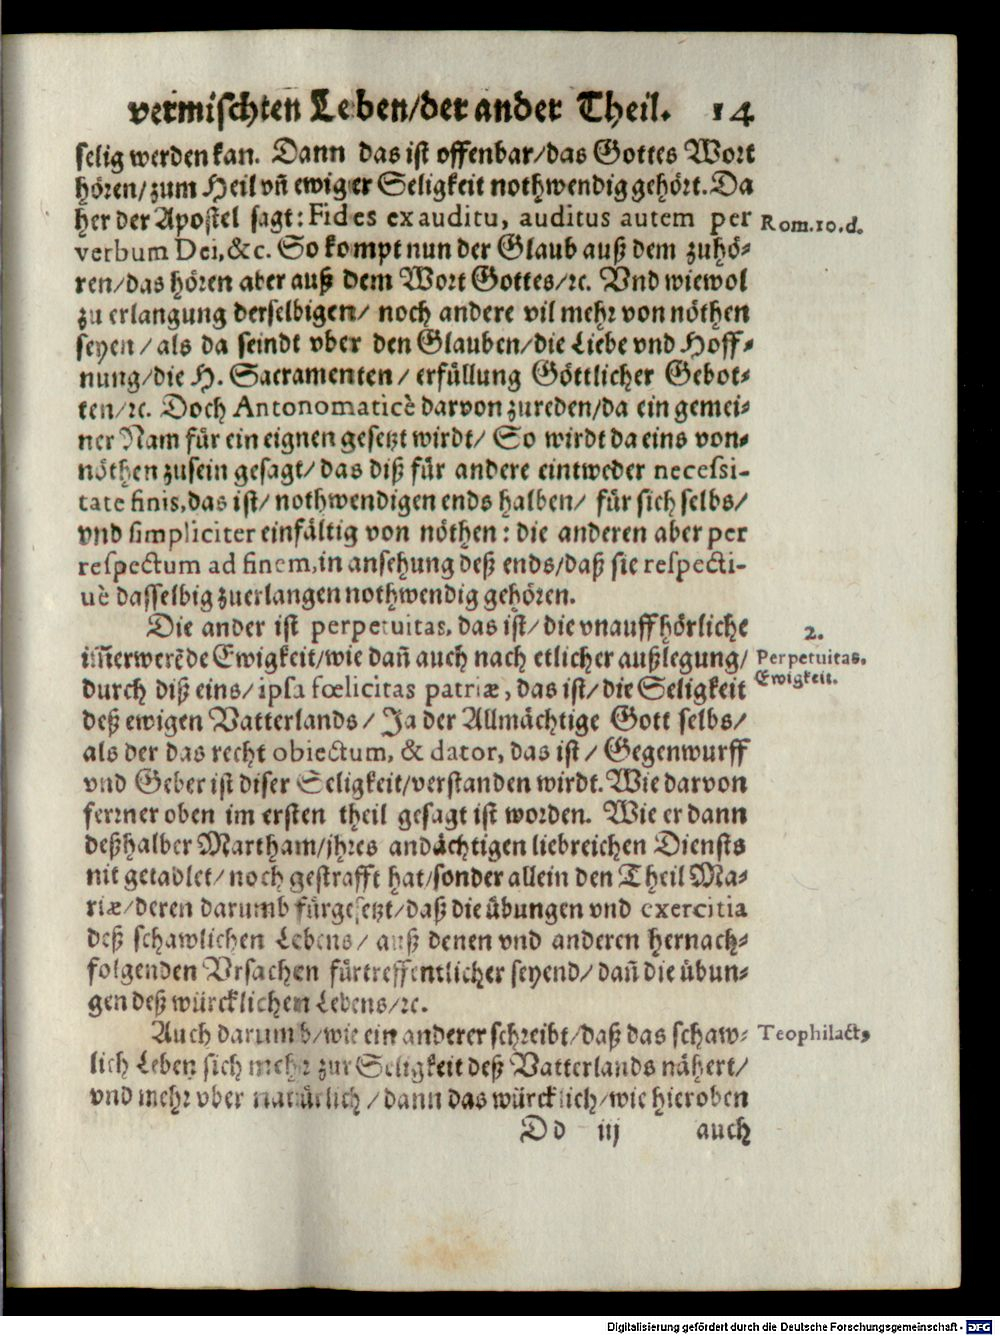 vermischten Leben/der ander Theil. 14
selig werden kan. Dann das ist offenbar/das Gottes Wort
hören/zum Heil vñ ewiger Seligkeit nothwendig gehört. Da
her der Apostel sagt: Fides ex auditu, auditus autem per
Rom.10.d.
verbum Dei, &c. So kompt nun der Glaub auß dem zuhö-
ren/das hören aber auß dem Wort Gottes/rc. Vnd wiewol
zu erlangung derselbigen/ noch andere vil mehr von nöthen
seyen/als da seindt vber den Glauben/die Liebe vnd Hoff-
nung/die H. Sacramenten/ erfüllung Göttlicher Gebot-
ten/rc. Doch Antonomaticè darvon zureden/da ein gemei-
ner Nam für ein eignen gesetzt wirdt/ So wirdt da eins von-
nöthen zusein gesagt/das diß für andere eintweder necessi-
tate finis, das ist/ nothwendigen ends halben/ für sich selbs/
vnd simpliciter einfältig von nöthen: die anderen aber per
respectum ad finem, in ansehung deß ends/daß sie respecti-
uè dasselbig zuerlangen nothwendig gehören.
Die ander ist perpetuitas, das ist/die vnauffhörliche
2.
im̃erwerēde Ewigkeit/wie dañ auch nach etlicher außlegung/
Perpetuitas.
durch diß eins/ipsa fœlicitas patriæ, das ist/die Seligkeit
Ewigkeit.
deß ewigen Vatterlands/ Ja der Allmächtige Gott selbs/
als der das recht obiectum, & dator, das ist/ Gegenwurff
vnd Geber ist diser Seligkeit/verstanden wirdt. Wie darvon
ferrner oben im ersten theil gesagt ist worden. Wie er dann
deßhalber Martham/jhres andächtigen liebreichen Diensts
nit getadlet/noch gestrafft hat/sonder allein den Theil Ma-
riæ/deren darumb fürgesetzt/daß die übungen vnd exercitia
deß schawlichen Lebens/ auß denen vnd anderen hernach-
folgenden Vrsachen fürtreffentlicher seyend/dañ die übun-
gen deß würcklichen Lebens/rc.
Auch darumb/wie ein anderer schreibt/daß das schaw-
Teophilact,
lich Leben sich mehr zur Seligkeit deß Vatterlands nähert/
vnd mehr vber natürlich/dann das würcklich/wie hieroben
Dd iij auch
Digitalisierung gefördert durch die Deutsche Forschungsgemeinschaft - DFG